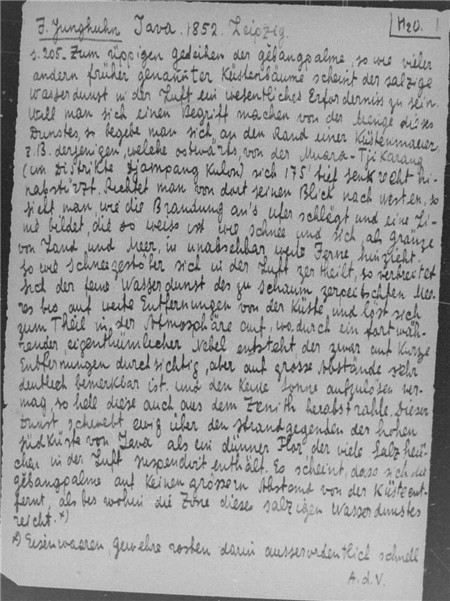 F. Junghuhn Java. 1852. Leipzig.
H2O. 1
s. 205. Zum üppigen gedeihen der gebangpalme, so wie vieler
andern früher genannter Küstenbäume scheint der salzige
Wasserdunst in der Luft ein wesentliches Erforderniss zu sein.
Will man sich einen Begriff machen von der Menge dieses
Dunstes, so begebe man sich, an den Rand einer Küstenmauer,
z.B. derjenigen, welche ostwärts, von der Muara-Tji Karang
(im Distrikte Djampang Kulon) sich 175' tief senkrecht hi-
nabstürzt. Richtet man von dort seinen Blick nach westen, so
sieht man, wie die Brandung an's ufer schlägt und eine Li-
nie bildet, die so weiss ist wie schnee und sich als gränze
von Land und Meer, in unabsehbar weite Ferne hinzieht.
so wie schneegestöber sich in der Luft zertheilt, so verbreitet
sich der feine Wasserdunst des zu schaum zerpeitschten Mee-
res bis auf weite Entfernungen von der Küste, und löst sich
zum Theil in der Atmosphäre auf, wodurch ein fortwäh-
render, eigenthümlicher Nebel entsteht der zwar auf Kurze
Entfernungen durchsichtig, aber auf grosse Abstände sehr
deutlich bemerkbar ist. und den keine sonne aufzulösen ver-
mag, so hell diese auch aus dem Zenith herabstrahle. Dieser
Dunst, schwebt ewig über den strandgegenden der hohen
südküste von Java als ein dünner Flor, der viele Salztheil-
chen in der Luft suspendirt enthält. Es scheint, dass sich die
gebangpalme auf keinen grössern Abstand von der Küste ent-
fernt, als bis wohin die Zone dieses salzigen Wasserdunstes
reicht. *)
*) Eisenwaaren, gewehre rosten darin ausserordentlich schnell
A.d.V.